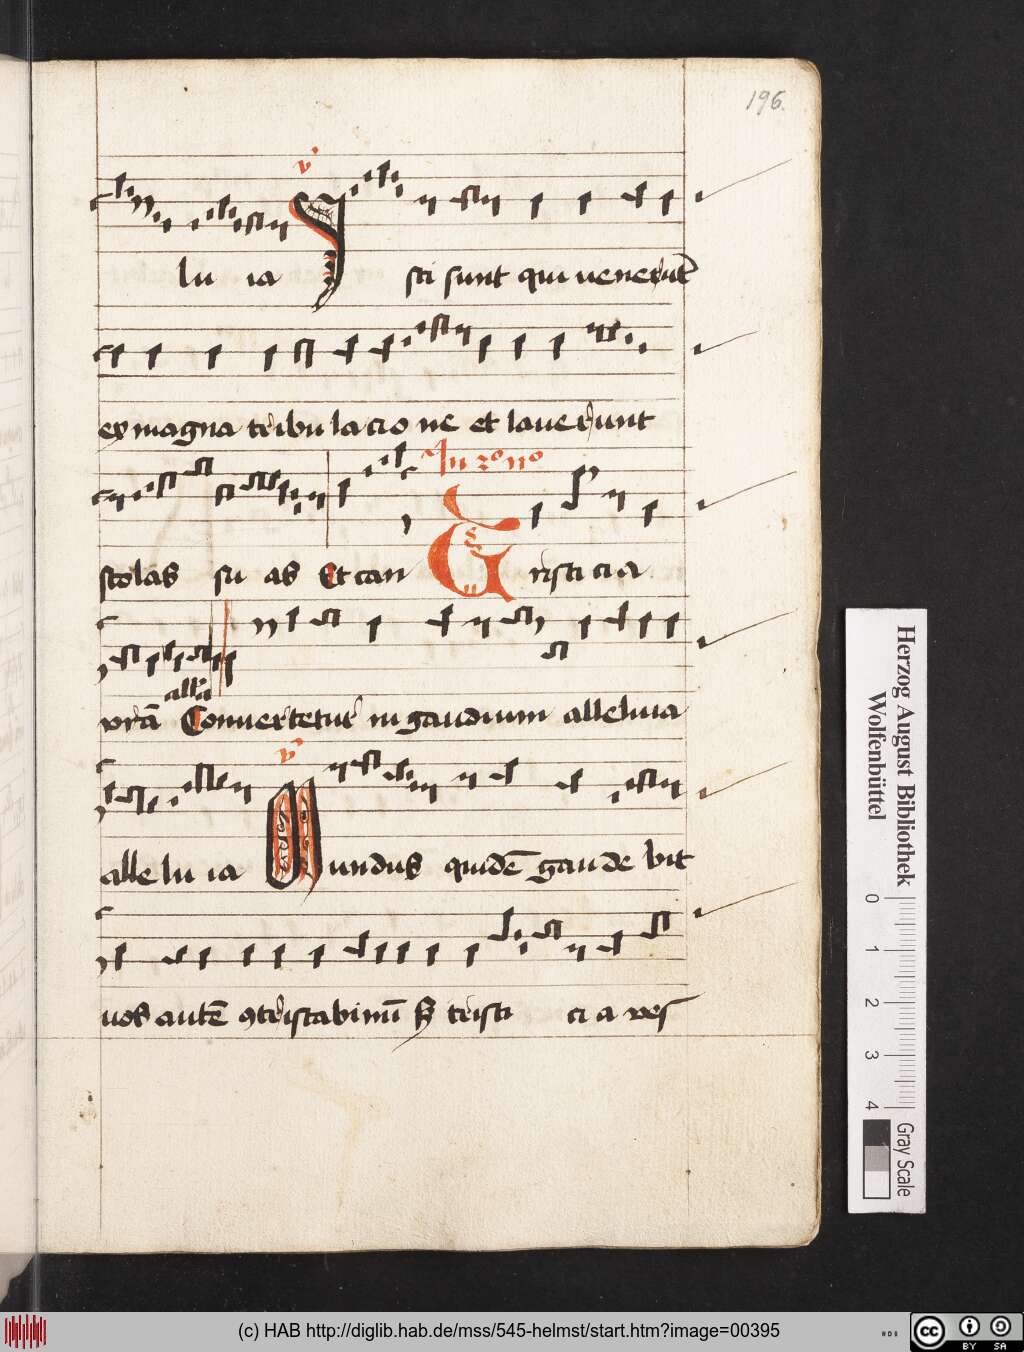 196.
v
lu ia Isti sunt qui venerūt
ex magna tribulacione et laverunt
In 2o no
stolas su as Et can Tristicia
vrā all'a Convertetur in gaudium alleluia
v
alle lu ia Mundus quidē gaudebit
vos autē 9tristabimī S3 tristi ci a ves
Herzog August Bibliothek
Wolfenbüttel
0 1 2 3 4
Gray Scale
(c) HAB http://diglib.hab.de/mss/545-helmst/start.htm?image=00395
cc BY SA